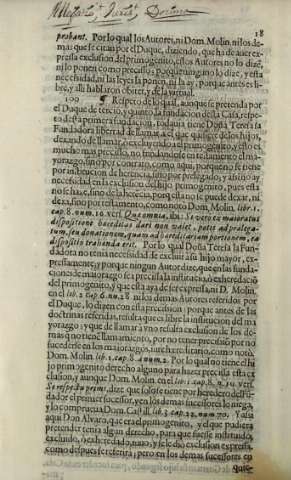 18
probant. Por lo qual los Autores, ni Dom. Molin. ni los de-
mas que se citan por el Duque, diziendo, que ha de auer ex-
pressa exclusion del primogenito, estos Autores no lo dizẽ,
ni lo ponen como preciso: porque ninguno lo dize, y esta
necessidad, ni las leyes la ponen, ni la ay, porque antes es li-
bre, y alli hablaron obiter, y de la virtual.
100 ¶ Respeto de lo qual, aunque se pretenda por
el Duque de tercio, y quinto la fundacion desta Casa, respe-
to desta primera fundacion, todauia tiene Doña Teresa la
Fundadora libertad de llamar a el que quisiere de los hijos,
dexando de llamar, ò excluyendo a el primogenito, y esto es
mucho mas preciso, no fundandose en testamento el ma-
yorazgo, sino por contrato, como aqui, porque no se tiene
por atribucion de herencia, sino por prelegado, y assi no ay
necessidad en la exclusion del hijo primogenito, pues esta
no se haze, sino de la herecia, porq esta no se puede dexar, ni
da, sino por testamento, como noto Dom. Molin. lib. 1.
cap. 8. num. 10. vers. Quæ omnia, ibi: Se vero ex maioratus
dispositione hæredes dari non valet, potes ad prælega-
tum, seu donationem, quam ad hæreditariam portionem, ea
dispositio trahenda erit. Por lo qual Doña Teresa la Funda-
dora no tenia necessidad de excluir a su hijo mayor, ex-
pressamente, y porque ningun Autor dize, que en las funda-
ciones de mayorazgo sea precisa la institucio, ò exheredació
del primogenito, y que esta aya de ser expressa, ni D. Molin.
en el lib. 2. cap. 6. n. 28 ni los demas Autores referidos por
el Duque, lo dizen con esta precision: porque antes de las
doctrinas referidas, resulta que es libre la institucion del ma
yorazgo; y que de llamar a vno resulta exclusion de los de-
mas q no tiene llamamiento, por no tener precisió por no
sucederse en los mayorazgos, iure hereditario, como notò
Dom. Molin. lib. 1. cap. 8. num. 2. Por lo qual no tiene el hi
jo primogenito derecho alguno para hazer precisa esta ex-
clusion, y aunque Dom. Molin. en el lib. 1. cap. 8. n. 31. vers.
dize que solo se tiene por heredero del Fun-
dador el primer sucessor, y en los demas sucessores lo niega,
y lo comprueua Dom. Castill. lib. 3. cap. 22. num. 70. Y assi
aqui Don Aluaro, que era el primogenito, y el que pudiera
pretender tenia algun derecho, para que fuesse instituido,
excluido, ò exheredado, nazo, y le dio exclusion expressa,
como despues se referira; pero en los demas sucessores en
que-